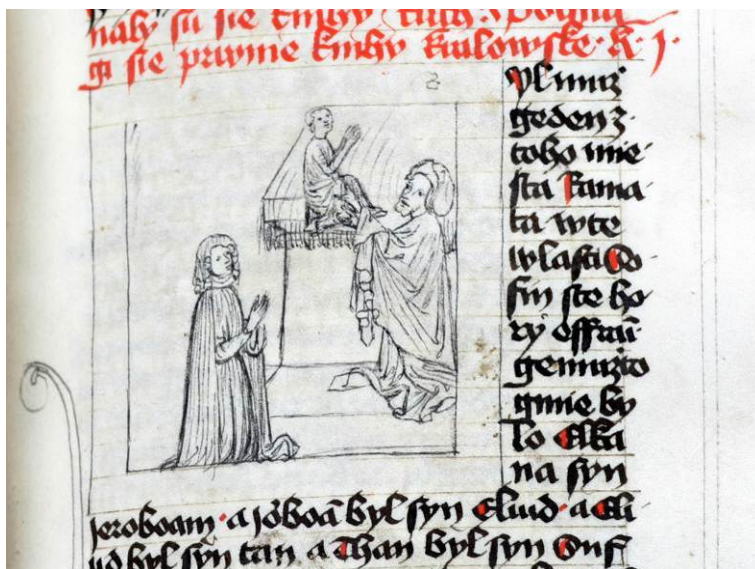 naly su sie knihy
gi sie prwnie knihy kralowske · k · j ·
yl muz
geden z
toho mie
sta Rama
ta wte
wlasti
sin ste ho
ry effrai
gemuzto
gmie by
lo Elka
na syn
Jeroboam · a Joboa byl syn Eliud · a Eli
ud byl syn tau a Than byl syn Suf